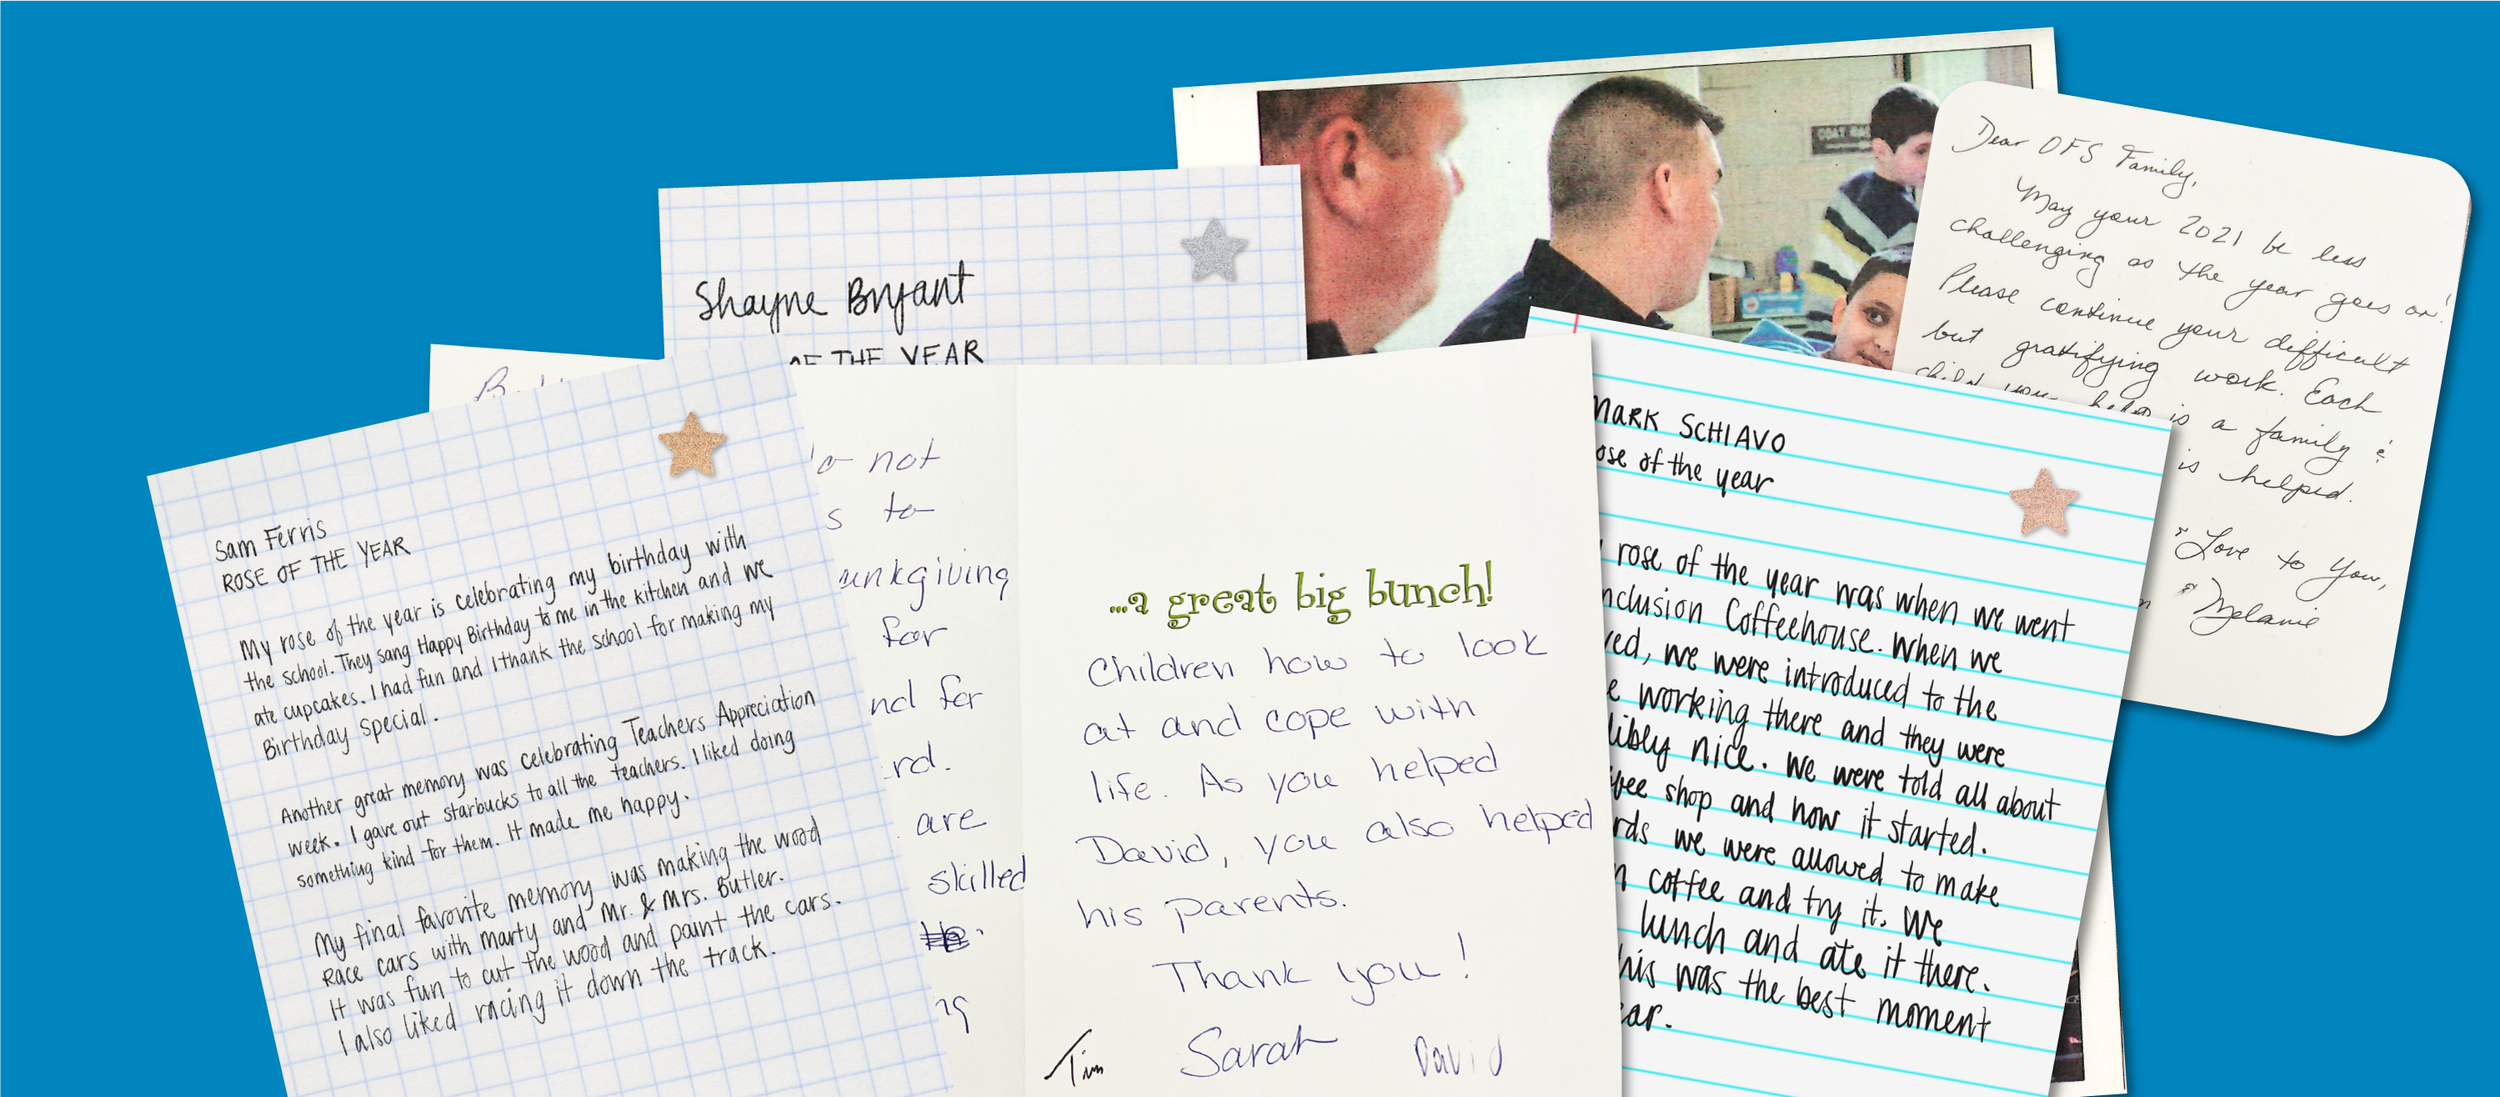 Shayne Bryant
OF THE YEAR
Sam Ferris
ROSE OF THE YEAR
My rose of the year is celebrating my birthday with
the school. They sang Happy Birthday to me in the kitchen and we
ate cupcakes. I had fun and I thank the school for making my
Birthday special.
Another great memory was celebrating Teachers Appreciation
week. I gave out starbucks to all the teachers. I liked doing
something kind for them. It made me happy.
My final favorite memory was making the wood
Race cars with Marty and Mr. & Mrs. Butler.
It was fun to cut the wood and paint the cars.
I also liked racing it down the track.
not
to
for
nd for
rd.
are
skilled
...a great big bunch!
Children how to look
at and cope with
life. As you helped
David, you also helped
his parents.
Thank you!
Tim Sarah David
MARK SCHIAVO
ose of the year
rose of the year was when we went
nclusion Coffeehouse. When we
ved, we were introduced to the
e working there and they were
libly nice. We were told all about
ffee shop and how it started.
rds we were allowed to make
n coffee and try it. We
lunch and ate it there.
his was the best moment
ear.
Dear OFS Family,
May your 2021 be less
challenging as the year goes on!
Please continue your difficult
but gratifying work. Each
child you help is a family &
is helped.
Love to You,
Melanie